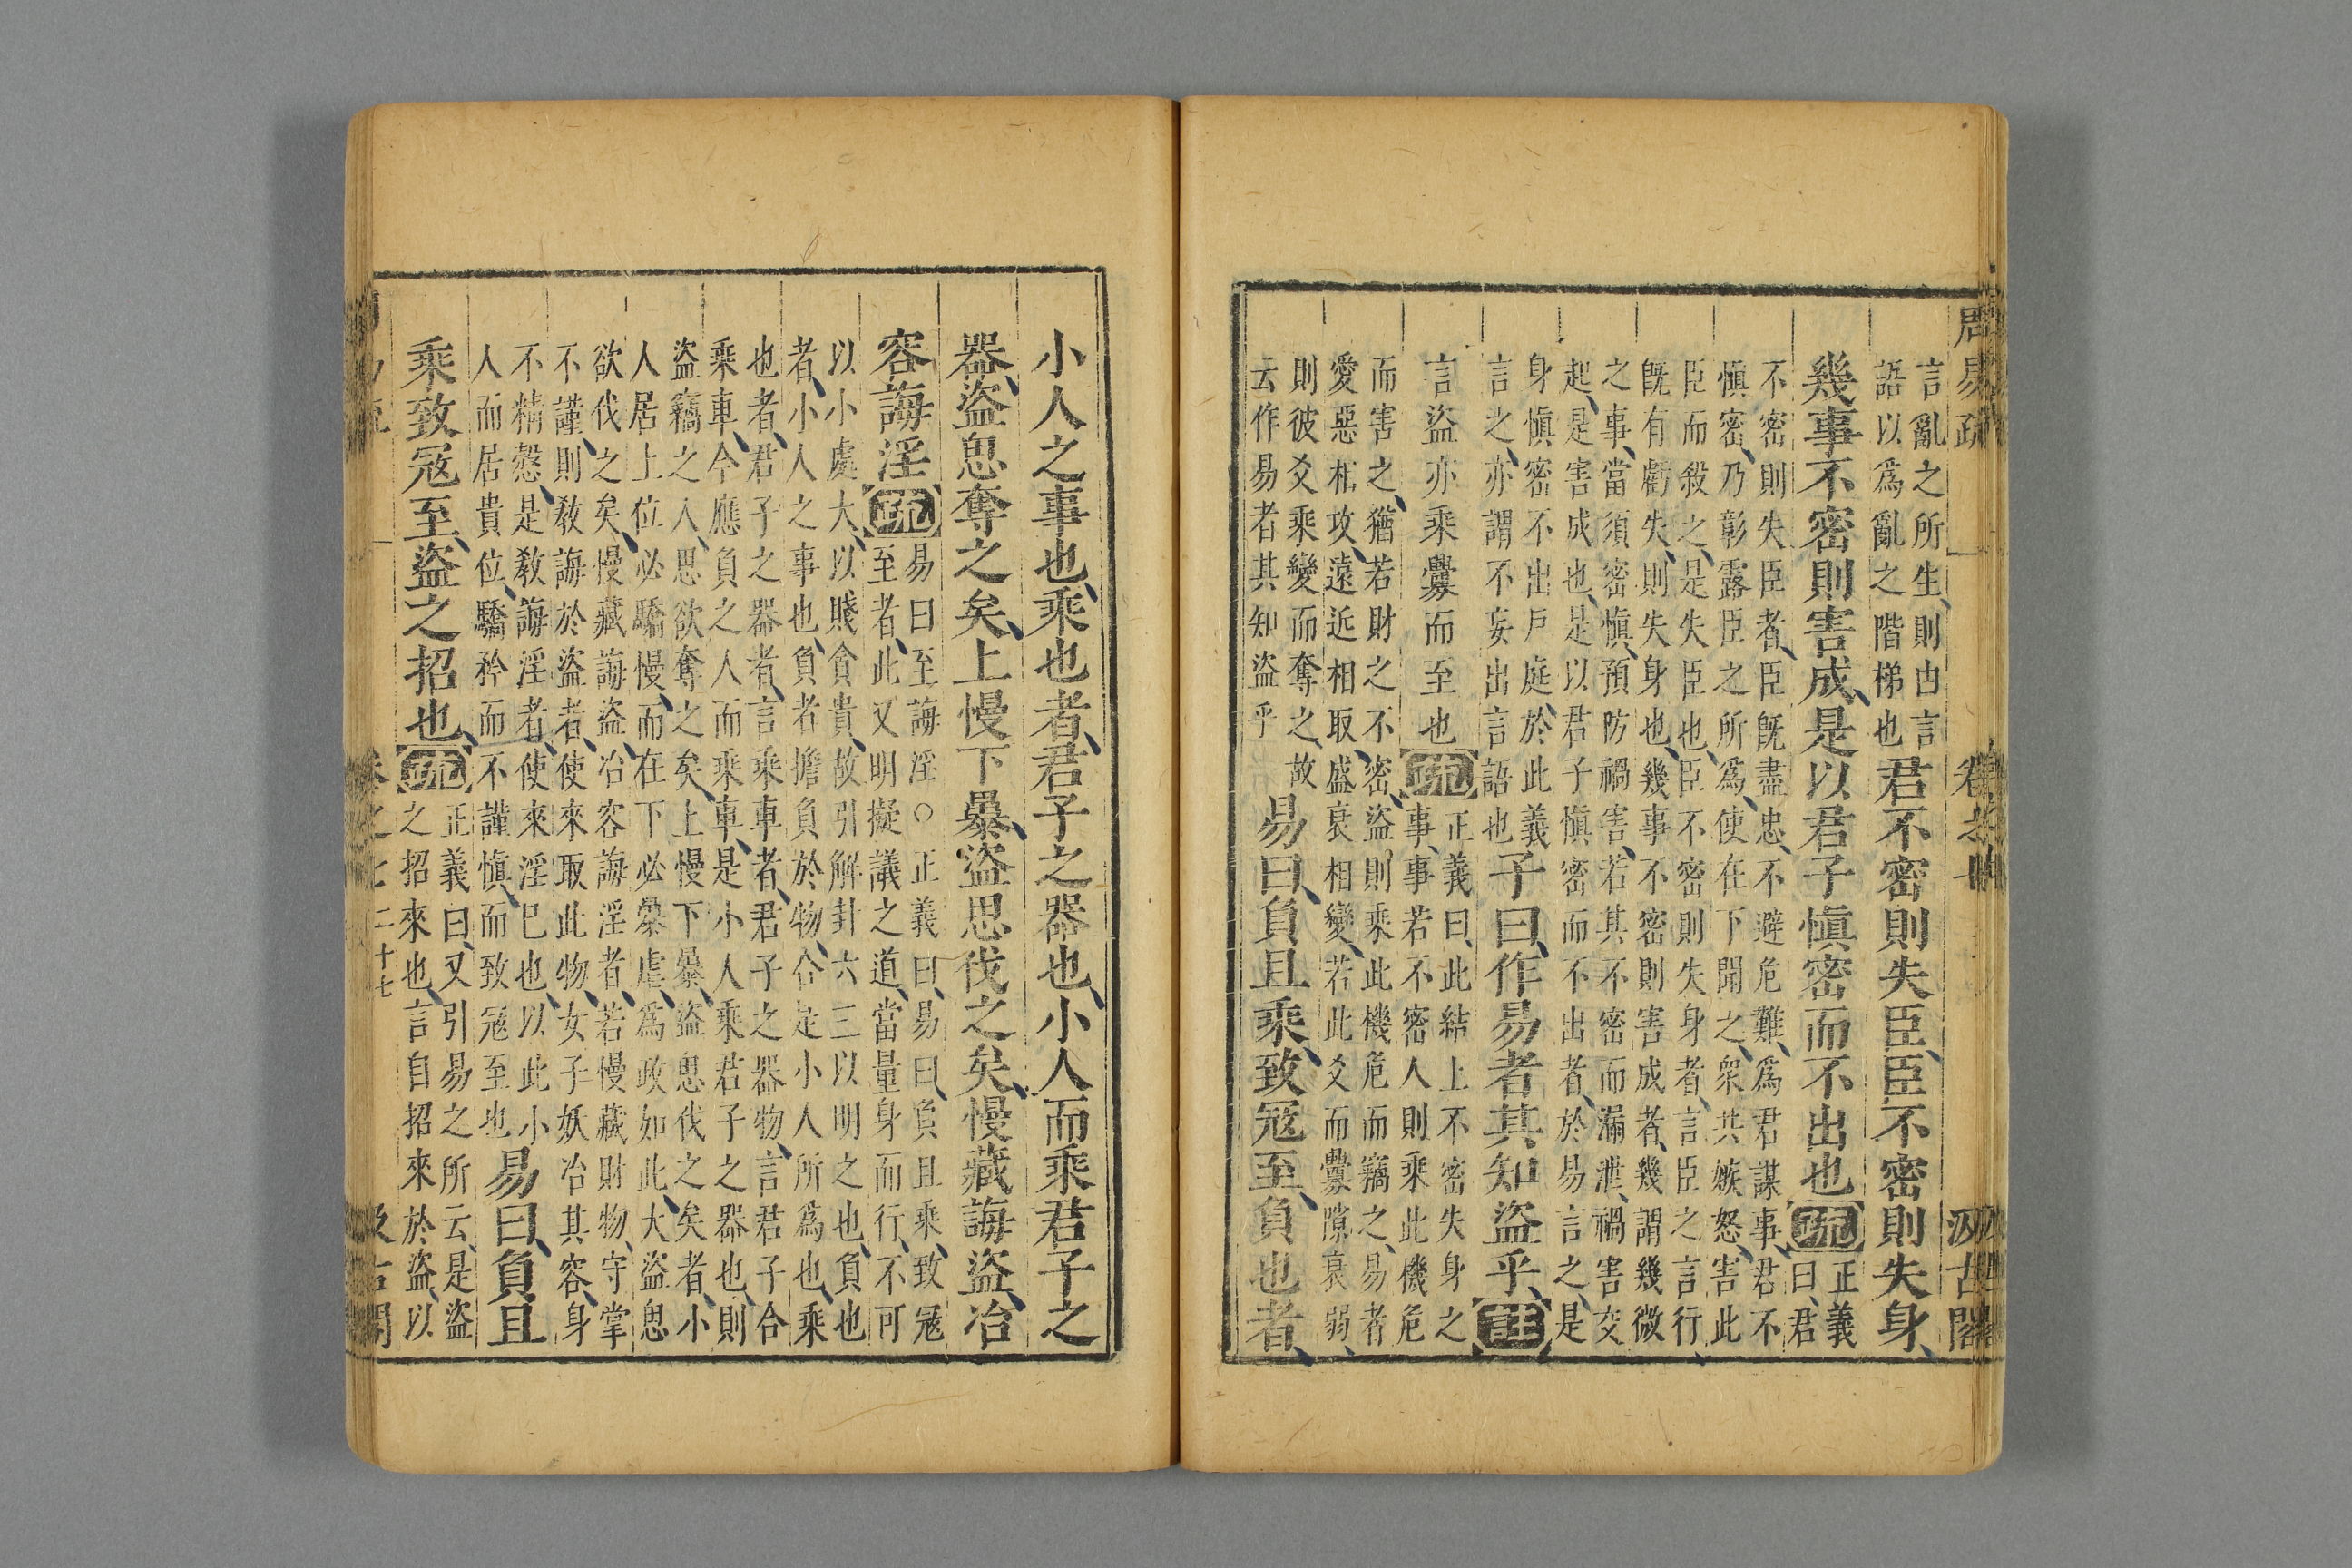 周易疏 卷之七 汲古閣
言亂之所生則由言
語以爲亂之階梯也
君不密則失臣臣不密則失身
幾事不密則害成是以君子慎密而不出也
疏
正義
曰君
不密則失臣者臣既盡忠不避危難爲君謀事君不
慎密乃彰露臣之所爲使在下聞之衆共嫉怒害此
臣而殺之是失臣也臣不密則失身者言臣之言行
既有虧失則失身也幾事不密則害成者幾謂幾微
之事當須密慎預防禍害若其不密而漏泄禍害交
起是害成也是以君子慎密而不出者於易言之是
身慎密不出戶庭於此義
言之亦謂不妄出言語也
子曰作易者其知盜乎
註
言盜亦乘釁而至也
疏
正義曰此結上不密失身之
事事若不密人則乘此機危
而害之猶若財之不密盜則乘此機危而竊之易者
愛惡相攻遠近相取盛衰相變若此爻而釁隙衰弱
則彼爻乘變而奪之故
云作易者其知盜乎
易曰負且乘致寇至負也者
小人之事也乘也者君子之器也小人而乘君子之
器盜思奪之矣上慢下暴盜思伐之矣慢藏誨盜冶
容誨淫
疏
易曰至誨淫○正義曰易曰負且乘致寇
至者此又明擬議之道當量身而行不可
以小處大以賤貪貴故引解卦六三以明之也負也
者小人之事也負者擔負於物合是小人所爲也乘
也者君子之器者言乘車者君子之器物言君子合
乘車今應負之人而乘車是小人乘君子之器也則
盜竊之人思欲奪之矣上慢下暴盜思伐之矣者小
人居上位必驕慢而在下必暴虐爲政如此大盜思
欲伐之矣慢藏誨盜冶容誨淫者若慢藏財物守掌
不謹則教誨於盜者使來取此物女子妖冶其容身
不精慤是教誨淫者使來淫已也以此小
人而居貴位驕矜而不謹慎而致寇至也
易曰負且
乘致寇至盜之招也
疏
正義曰又引易之所云是盜
之招來也言自招來於盜以
卷之七 二十七 汲古閣